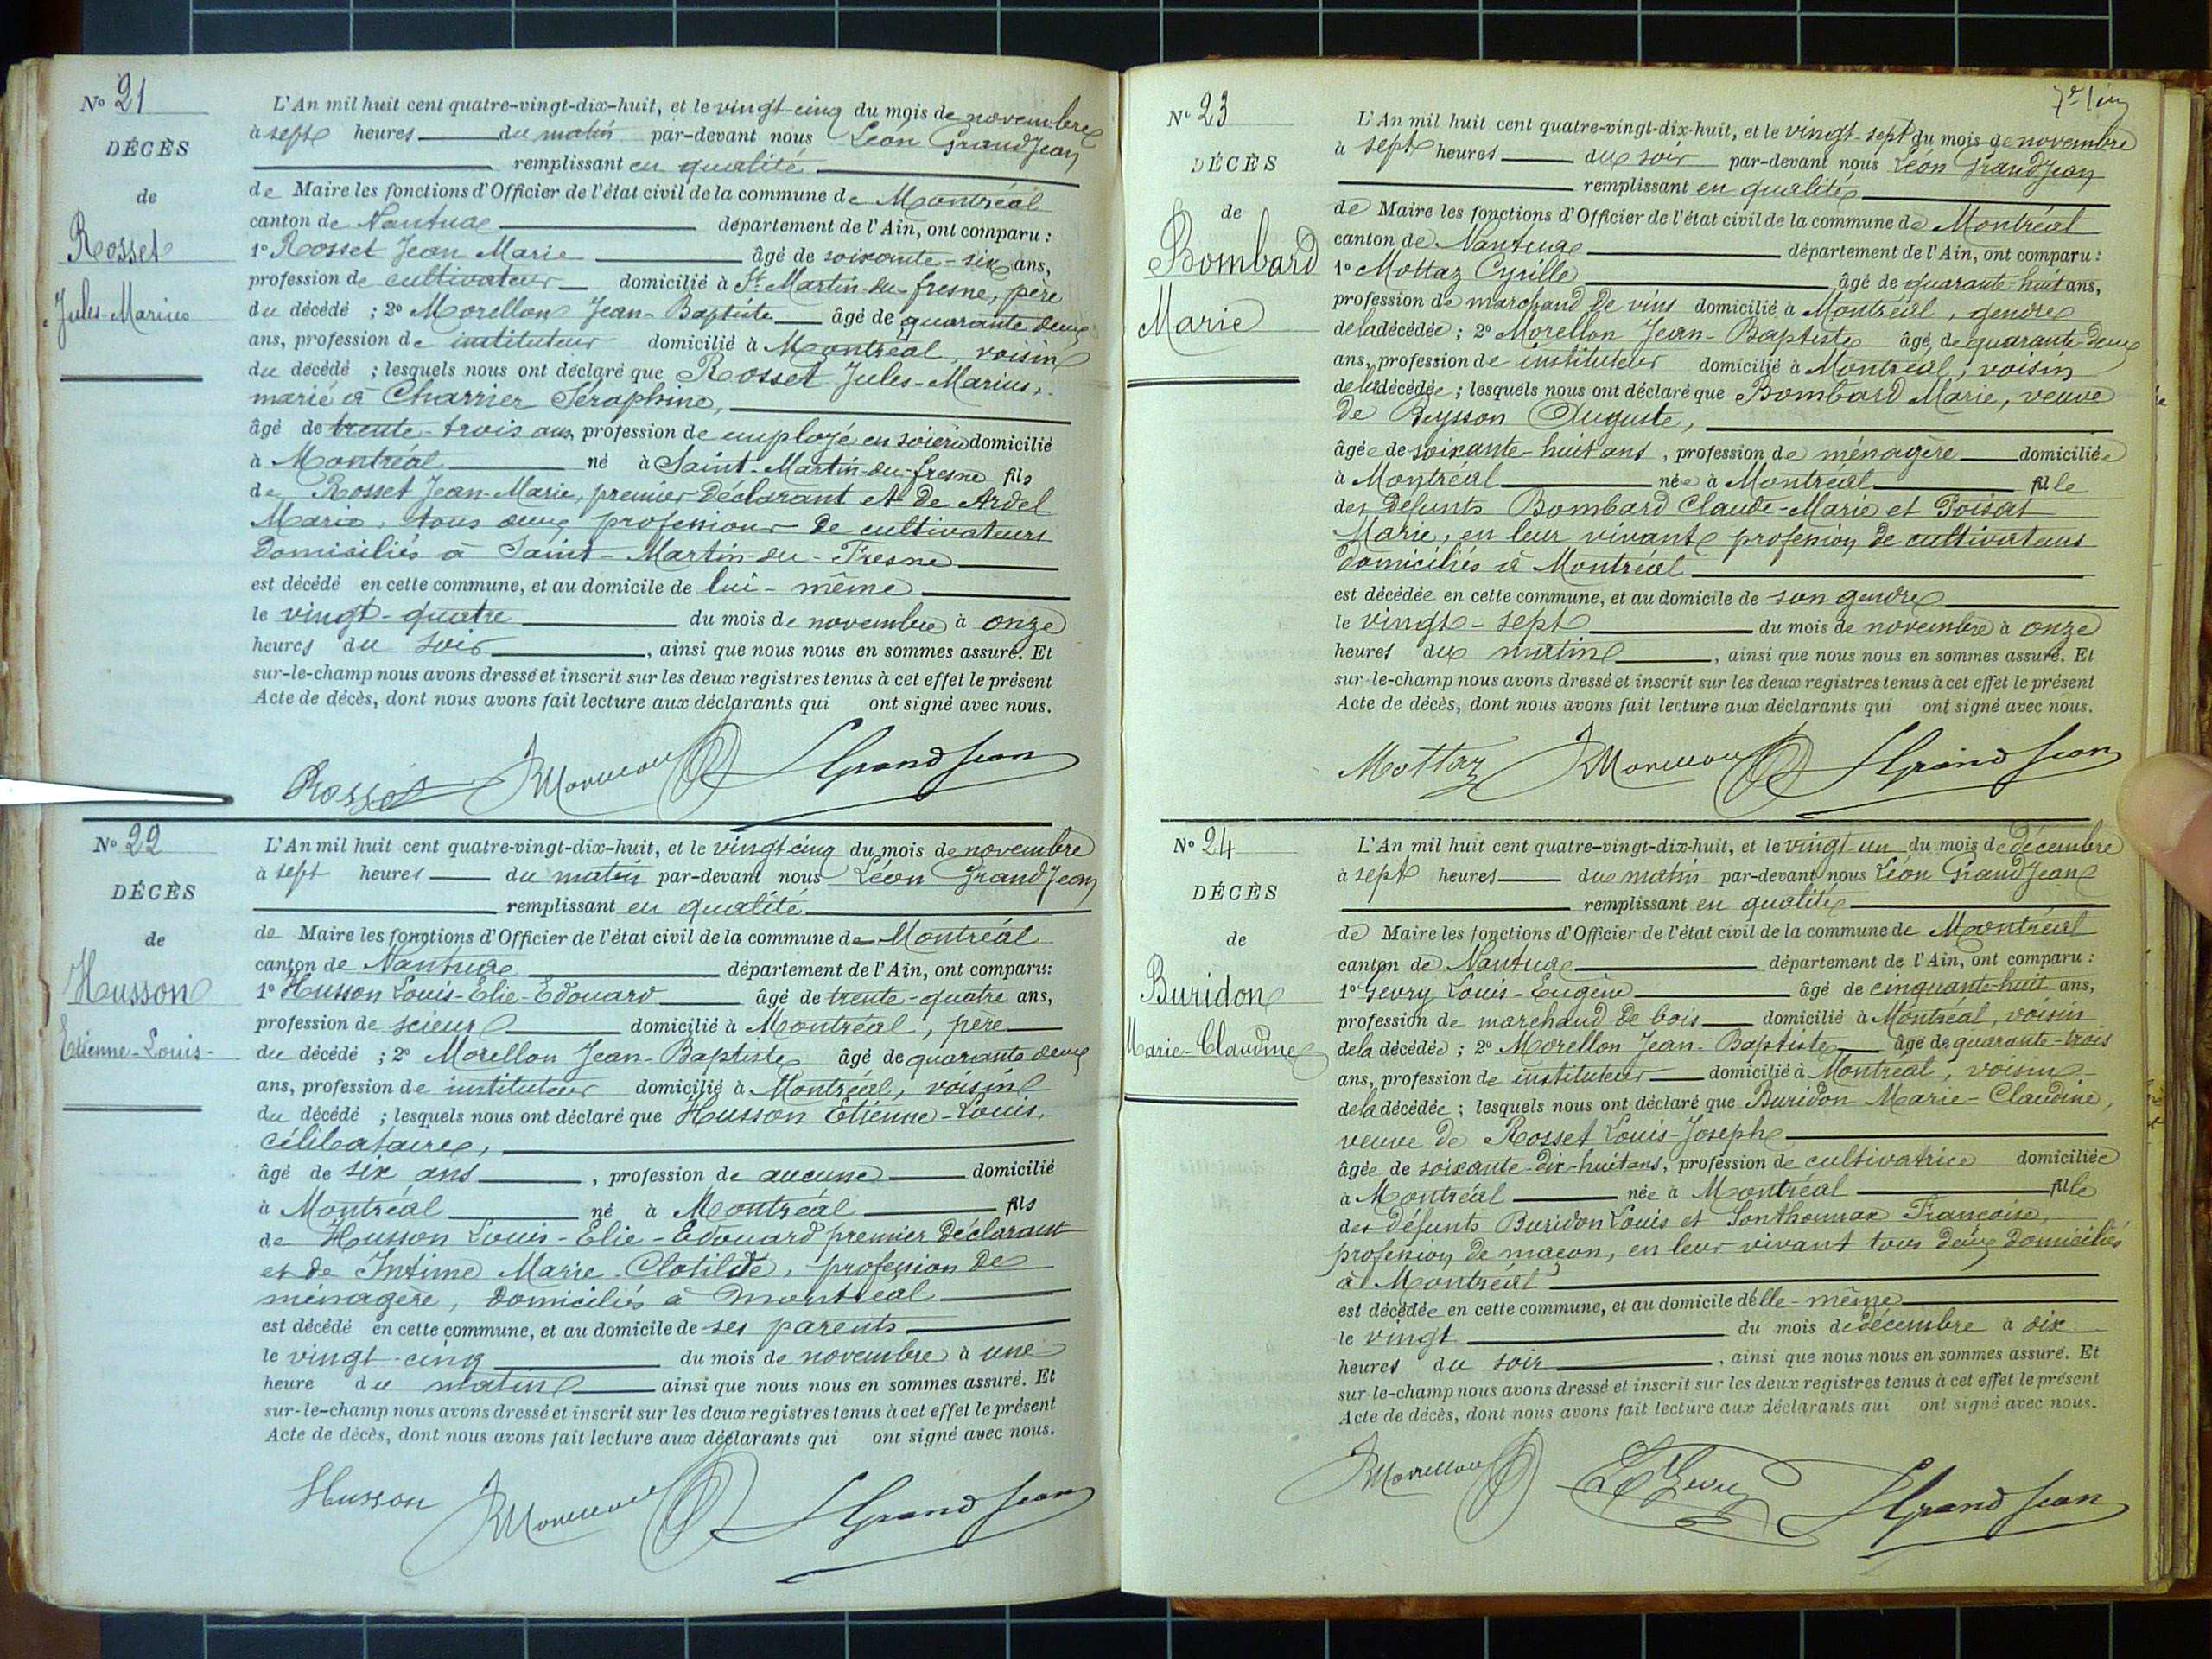 N° 21
DÉCÈS
de
Rosset
Jules-Marius
L'An mil huit cent quatre-vingt-dix-huit, et le vingt-cinq du mois de novembre
à sept heures du matin par-devant nous Léon GrandJean
remplissant en qualité
de Maire les fonctions d'Officier de l'état civil de la commune de Montréal
canton de Nantua département de l'Ain, ont comparu :
1° Rosset Jean Marie âgé de soixante-six ans,
profession de cultivateur domicilié à St Martin-du-fresne, père
du décédé ; 2° Morellon Jean-Baptiste âgé de quarante deux
ans, profession de instituteur domicilié à Montréal, voisin
du décédé ; lesquels nous ont déclaré que Rosset Jules-Marius,
marié à Charrier Séraphine,
âgé de trente-trois ans, profession de employé en soierie domicilié
à Montréal né à Saint-Martin-du-fresne fils
de Rosset Jean-Marie, premier déclarant et de Ardel
Marie, tous deux profession de cultivateurs
domiciliés à Saint-Martin-du-Fresne
est décédé en cette commune, et au domicile de lui-même
le vingt-quatre du mois de novembre à onze
heures du soir, ainsi que nous nous en sommes assuré. Et
sur-le-champ nous avons dressé et inscrit sur les deux registres tenus à cet effet le présent
Acte de décès, dont nous avons fait lecture aux déclarants qui ont signé avec nous.
Rosset JMorellon LGrandJean
N° 22
DÉCÈS
de
Husson
Etienne-Louis-
L'An mil huit cent quatre-vingt-dix-huit, et le vingt cinq du mois de novembre
à sept heures du matin par-devant nous Léon GrandJean
remplissant en qualité
de Maire les fonctions d'Officier de l'état civil de la commune de Montréal
canton de Nantua département de l'Ain, ont comparu:
1° Husson Louis-Elie-Edouard âgé de trente-quatre ans,
profession de scieur domicilié à Montréal, père
du décédé ; 2° Morellon Jean-Baptiste âgé de quarante deux
ans, profession de instituteur domicilié à Montréal, voisin
du décédé ; lesquels nous ont déclaré que Husson Etienne-Louis,
célibataire,
âgé de six ans, profession de aucune domicilié
à Montréal né à Montréal fils
de Husson Louis-Elie-Edouard premier déclarant
et de Intime Marie-Clotilde, profession de
ménagère, domiciliés à Montréal
est décédé en cette commune, et au domicile de ses parents
le vingt-cinq du mois de novembre à une
heure du matin ainsi que nous nous en sommes assuré. Et
sur-le-champ nous avons dressé et inscrit sur les deux registres tenus à cet effet le présent
Acte de décès, dont nous avons fait lecture aux déclarants qui ont signé avec nous.
Husson JMorellon LGrandJean
N° 23
DÉCÈS
de
Bombard
Marie
L'An mil huit cent quatre-vingt-dix-huit, et le vingt-sept du mois de novembre
à sept heures du soir par-devant nous Léon GrandJean
remplissant en qualité
de Maire les fonctions d'Officier de l'état civil de la commune de Montréal
canton de Nantua département de l'Ain, ont comparu :
1° Mottaz Cyrille âgé de quarante-huit ans,
profession de marchand de vins domicilié à Montréal, gendre
de la décédée ; 2° Morellon Jean-Baptiste âgé de quarante-deux
ans, profession de instituteur domicilié à Montréal, voisin
de la décédée ; lesquels nous ont déclaré que Bombard Marie, veuve
de Beysson Auguste,
âgée de soixante-huit ans, profession de ménagère domiciliée
à Montréal née à Montréal fille
des défunts Bombard Claude-Marie et Poisat
Marie, en leur vivant profession de cultivateurs
domiciliés à Montréal
est décédée en cette commune, et au domicile de son gendre
le vingt-sept du mois de novembre à onze
heures du matin, ainsi que nous nous en sommes assuré. Et
sur-le-champ nous avons dressé et inscrit sur les deux registres tenus à cet effet le présent
Acte de décès, dont nous avons fait lecture aux déclarants qui ont signé avec nous.
Mottaz JMorellon LGrandJean
N° 24
DÉCÈS
de
Buridon
Marie-Claudine
L'An mil huit cent quatre-vingt-dix-huit, et le vingt-un du mois de décembre
à sept heures du matin par-devant nous Léon GrandJean
remplissant en qualité
de Maire les fonctions d'Officier de l'état civil de la commune de Montréal
canton de Nantua département de l'Ain, ont comparu :
1° Gevry Louis-Eugène âgé de cinquante-huit ans,
profession de marchand de bois domicilié à Montréal, voisin
de la décédée ; 2° Morellon Jean-Baptiste âgé de quarante-trois
ans, profession de instituteur domicilié à Montréal, voisin
de la décédée ; lesquels nous ont déclaré que Buridon Marie-Claudine,
veuve de Rosset Louis-Joseph
âgée de soixante-dix-huit ans, profession de cultivatrice domiciliée
à Montréal née à Montréal fille
des défunts Buridon Louis et Sonthonnax Françoise,
profession de maçon, en leur vivant tous deux domiciliés
à Montréal
est décédée en cette commune, et au domicile d'elle-même
le vingt du mois de décembre à dix
heures du soir, ainsi que nous nous en sommes assuré. Et
sur-le-champ nous avons dressé et inscrit sur les deux registres tenus à cet effet le présent
Acte de décès, dont nous avons fait lecture aux déclarants qui ont signé avec nous.
JMorellon LGevry LGrandJean